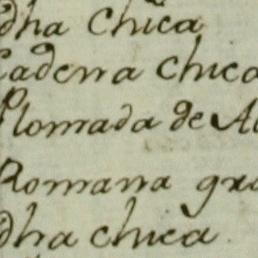 dha chica
Cadena chica
Plomada de A
Romana gra
dha chica.